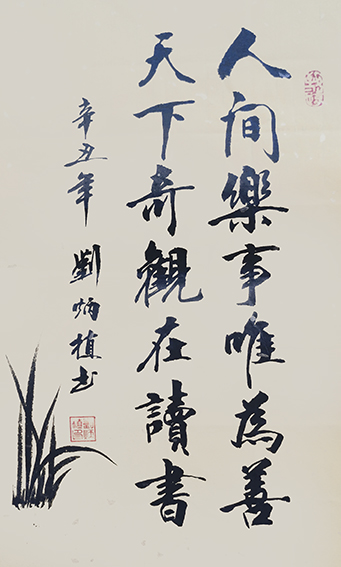 人间樂事唯為善
天下奇觀在讀書
辛丑年
劉炳植书